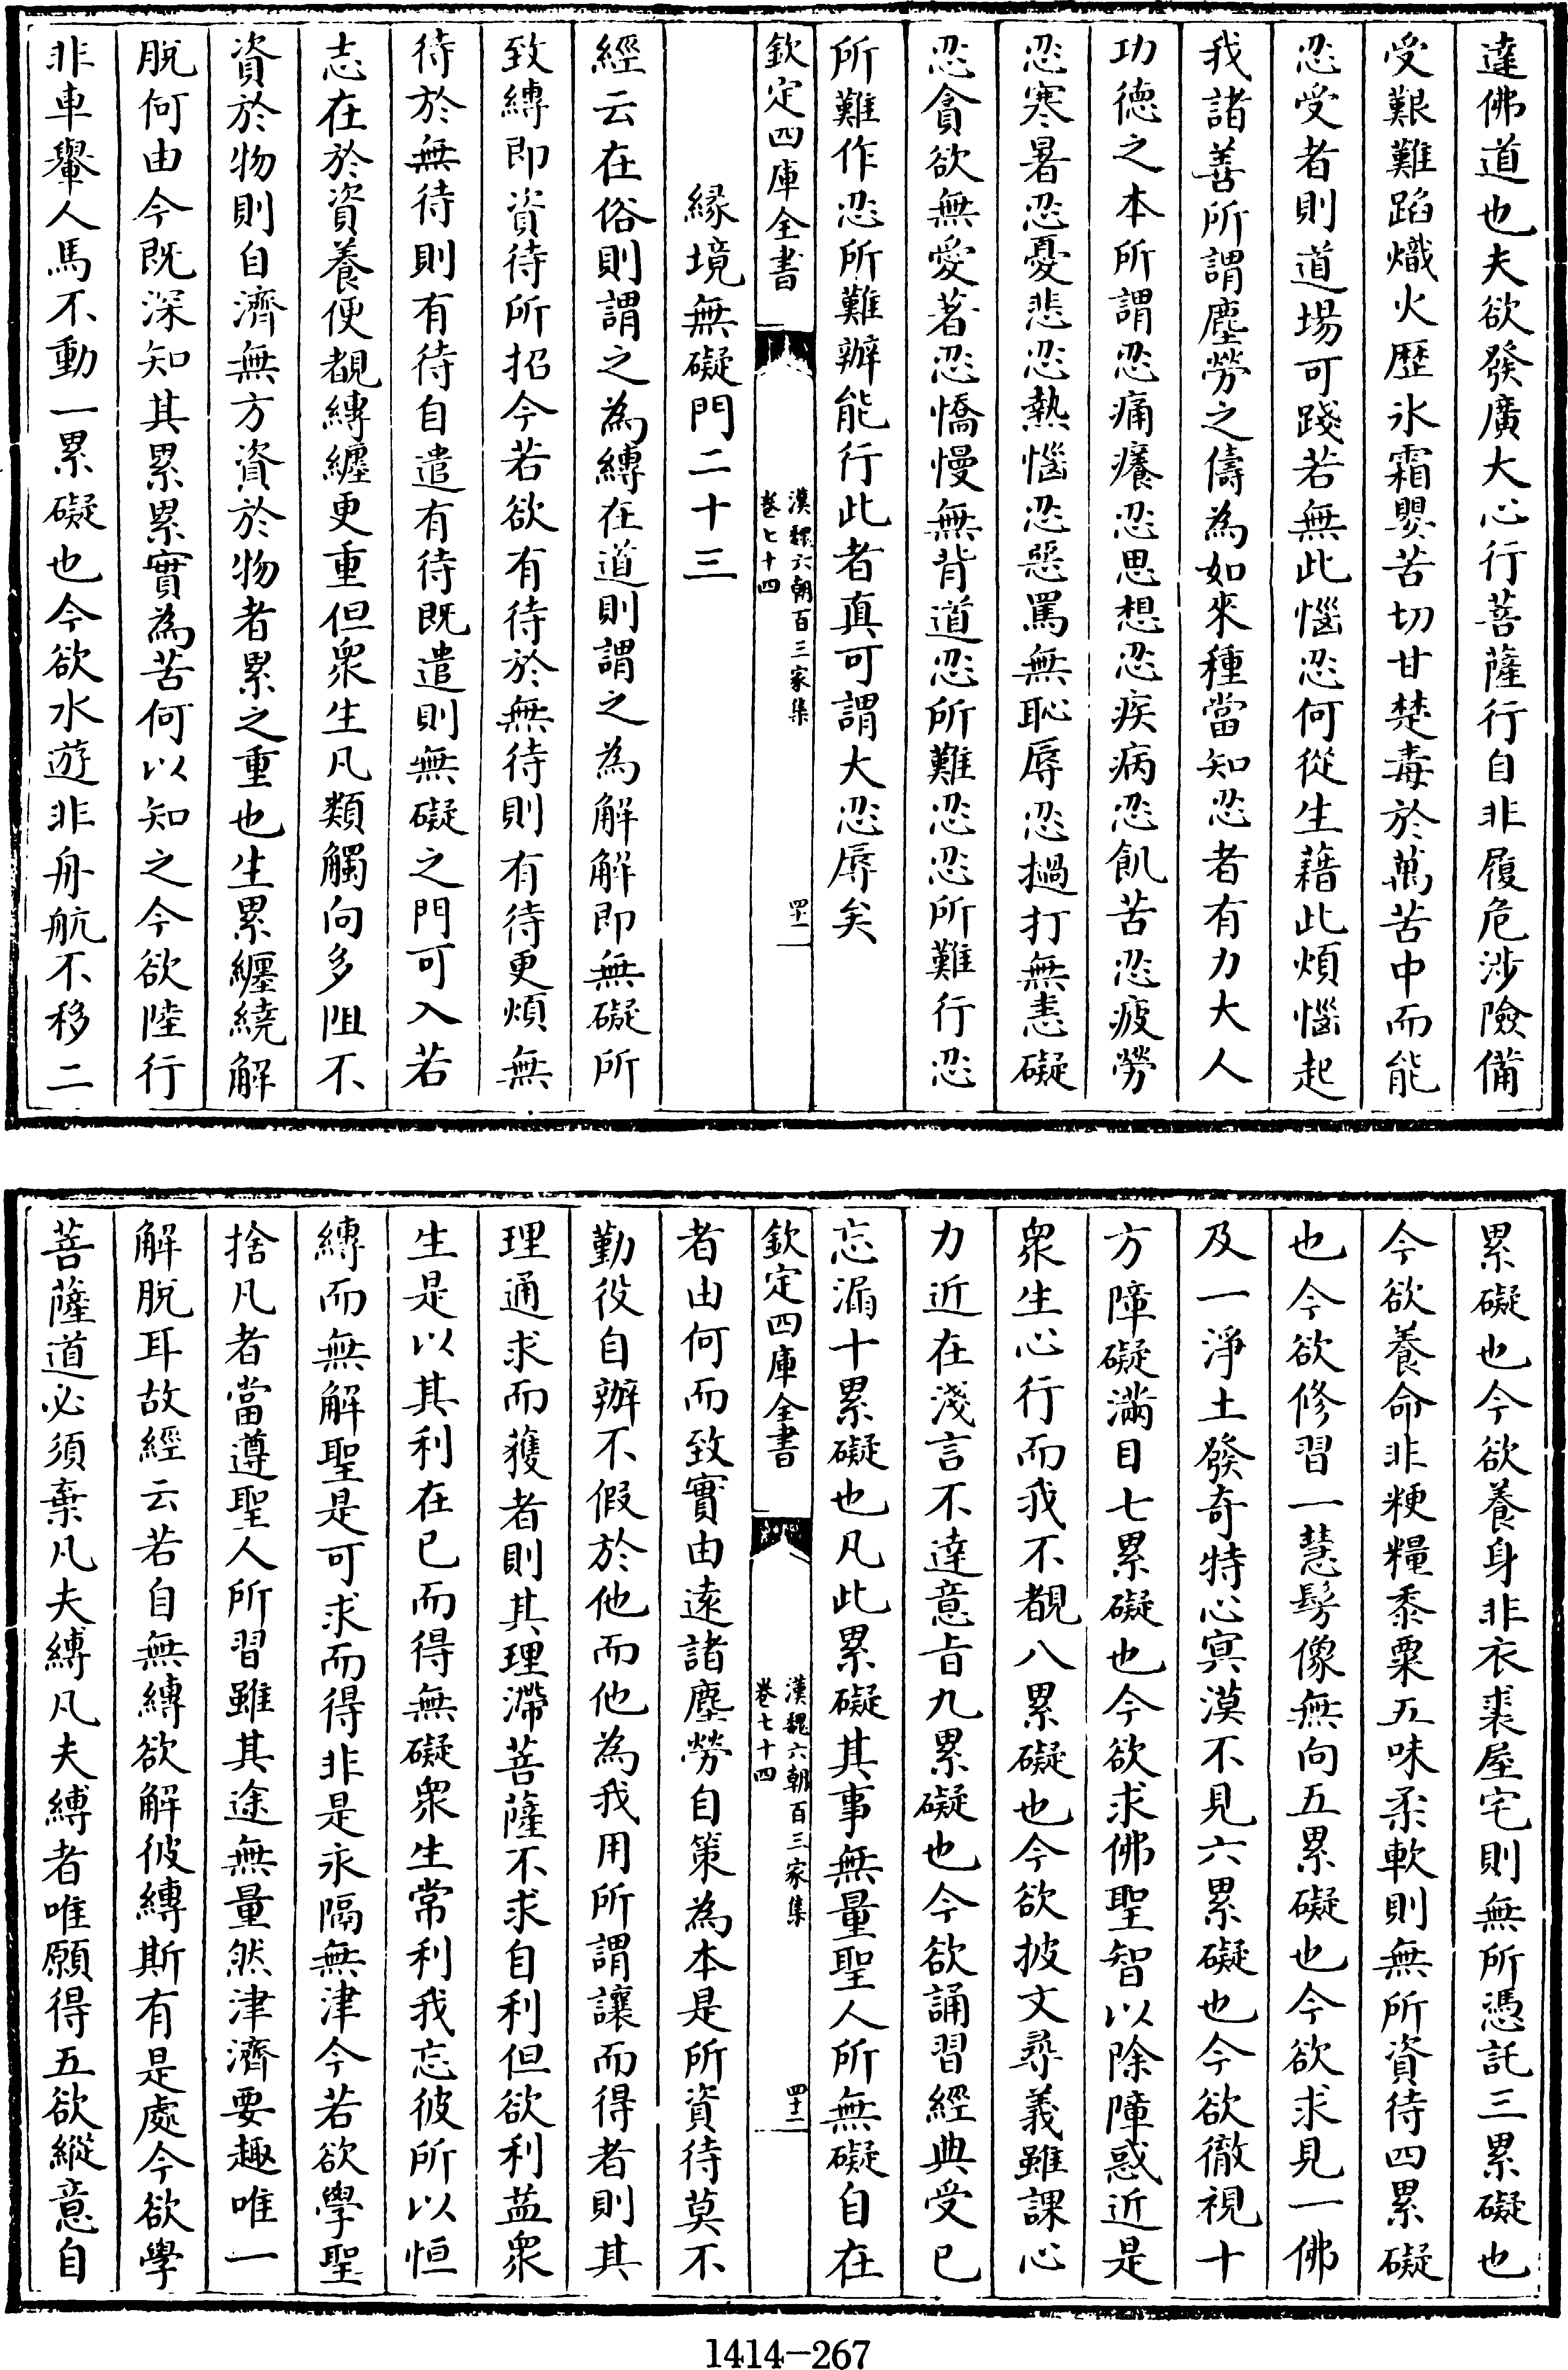 達佛道也夫欲發廣大心行菩薩行自非履危涉險備
受艱難蹈熾火歷氷霜嬰苦切甘楚毒於萬苦中而能
忍受者則道場可踐若無此惱忍何從生藉此煩惱起
我諸善所謂塵勞之儔為如來種當知忍者有力大人
功德之本所謂忍痛癢忍思想忍疾病忍飢苦忍疲勞
忍寒暑忍憂悲忍熱惱忍惡罵無恥辱忍撾打無恚礙
忍貪欲無愛著忍憍慢無背道忍所難忍忍所難行忍
所難作忍所難辦能行此者真可謂大忍辱矣
欽定四庫全書
漢魏六朝百三家集
卷七十四
四十一
緣境無礙門二十三
經云在俗則謂之為縛在道則謂之為解解即無礙所
致縛即資待所招今若欲有待於無待則有待更煩無
待於無待則有待自遣有待既遣則無礙之門可入若
志在於資養便覩縛纏更重但衆生凡類觸向多阻不
資於物則自濟無方資於物者累之重也生累纏繞解
脫何由今既深知其累累實為苦何以知之今欲陸行
非車轝人馬不動一累礙也今欲水遊非舟航不移二
累礙也今欲養身非衣裘屋宅則無所憑託三累礙也
今欲養命非粳糧黍粟五味柔軟則無所資待四累礙
也今欲修習一慧髣像無向五累礙也今欲求見一佛
及一淨土發奇特心冥漠不見六累礙也今欲徹視十
方障礙滿目七累礙也今欲求佛聖智以除障惑近是
衆生心行而我不覩八累礙也今欲披文尋義雖課心
力近在淺言不達意旨九累礙也今欲誦習經典受已
忘漏十累礙也凡此累礙其事無量聖人所無礙自在
欽定四庫全書
漢魏六朝百三家集
卷七十四
四十二
者由何而致實由遠諸塵勞自策為本是所資待莫不
勤役自辦不假於他而他為我用所謂讓而得者則其
理通求而獲者則其理滯菩薩不求自利但欲利益衆
生是以其利在已而得無礙衆生常利我忘彼所以恒
縛而無解聖是可求而得非是永隔無津今若欲學聖
捨凡者當遵聖人所習雖其途無量然津濟要趣唯一
解脫耳故經云若自無縛欲解彼縛斯有是處今欲學
菩薩道必須棄凡夫縛凡夫縛者唯願得五欲縱意自
1414-267